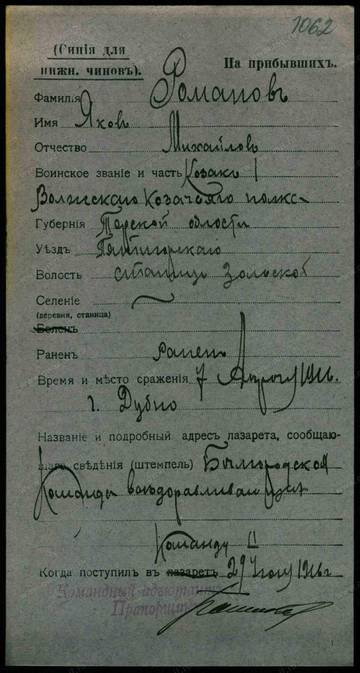 1062
(Синія для
нижн. чиновъ). На прибывшихъ.
Фамилія Романовъ
Имя Яковъ
Отчество Михайловъ
Воинское званіе и часть Козакъ 1
Волжскаго Козачяго полка
Губернія Терской области
Уѣздъ Пятигорскаго
Волость станицы Зольской
Селеніе
(деревня, станица)
Боленъ
Раненъ раненъ
Время и мѣсто сраженія 7 1916г.
г. Дубно
Названіе и подробный адресъ лазарета, сообщаю-
щаго свѣдѣнія (штемпель) Бѣлгородской
Команды выздоравливающихъ
Команду II
Когда поступилъ въ лазаретъ 29 1916г
Командный адъютантъ
Прапорщикъ